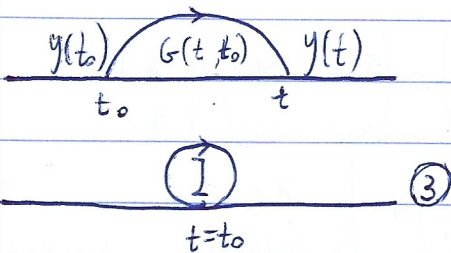 y(t₀) G(t,t₀) y(t)
t₀ t
I
③
t=t₀